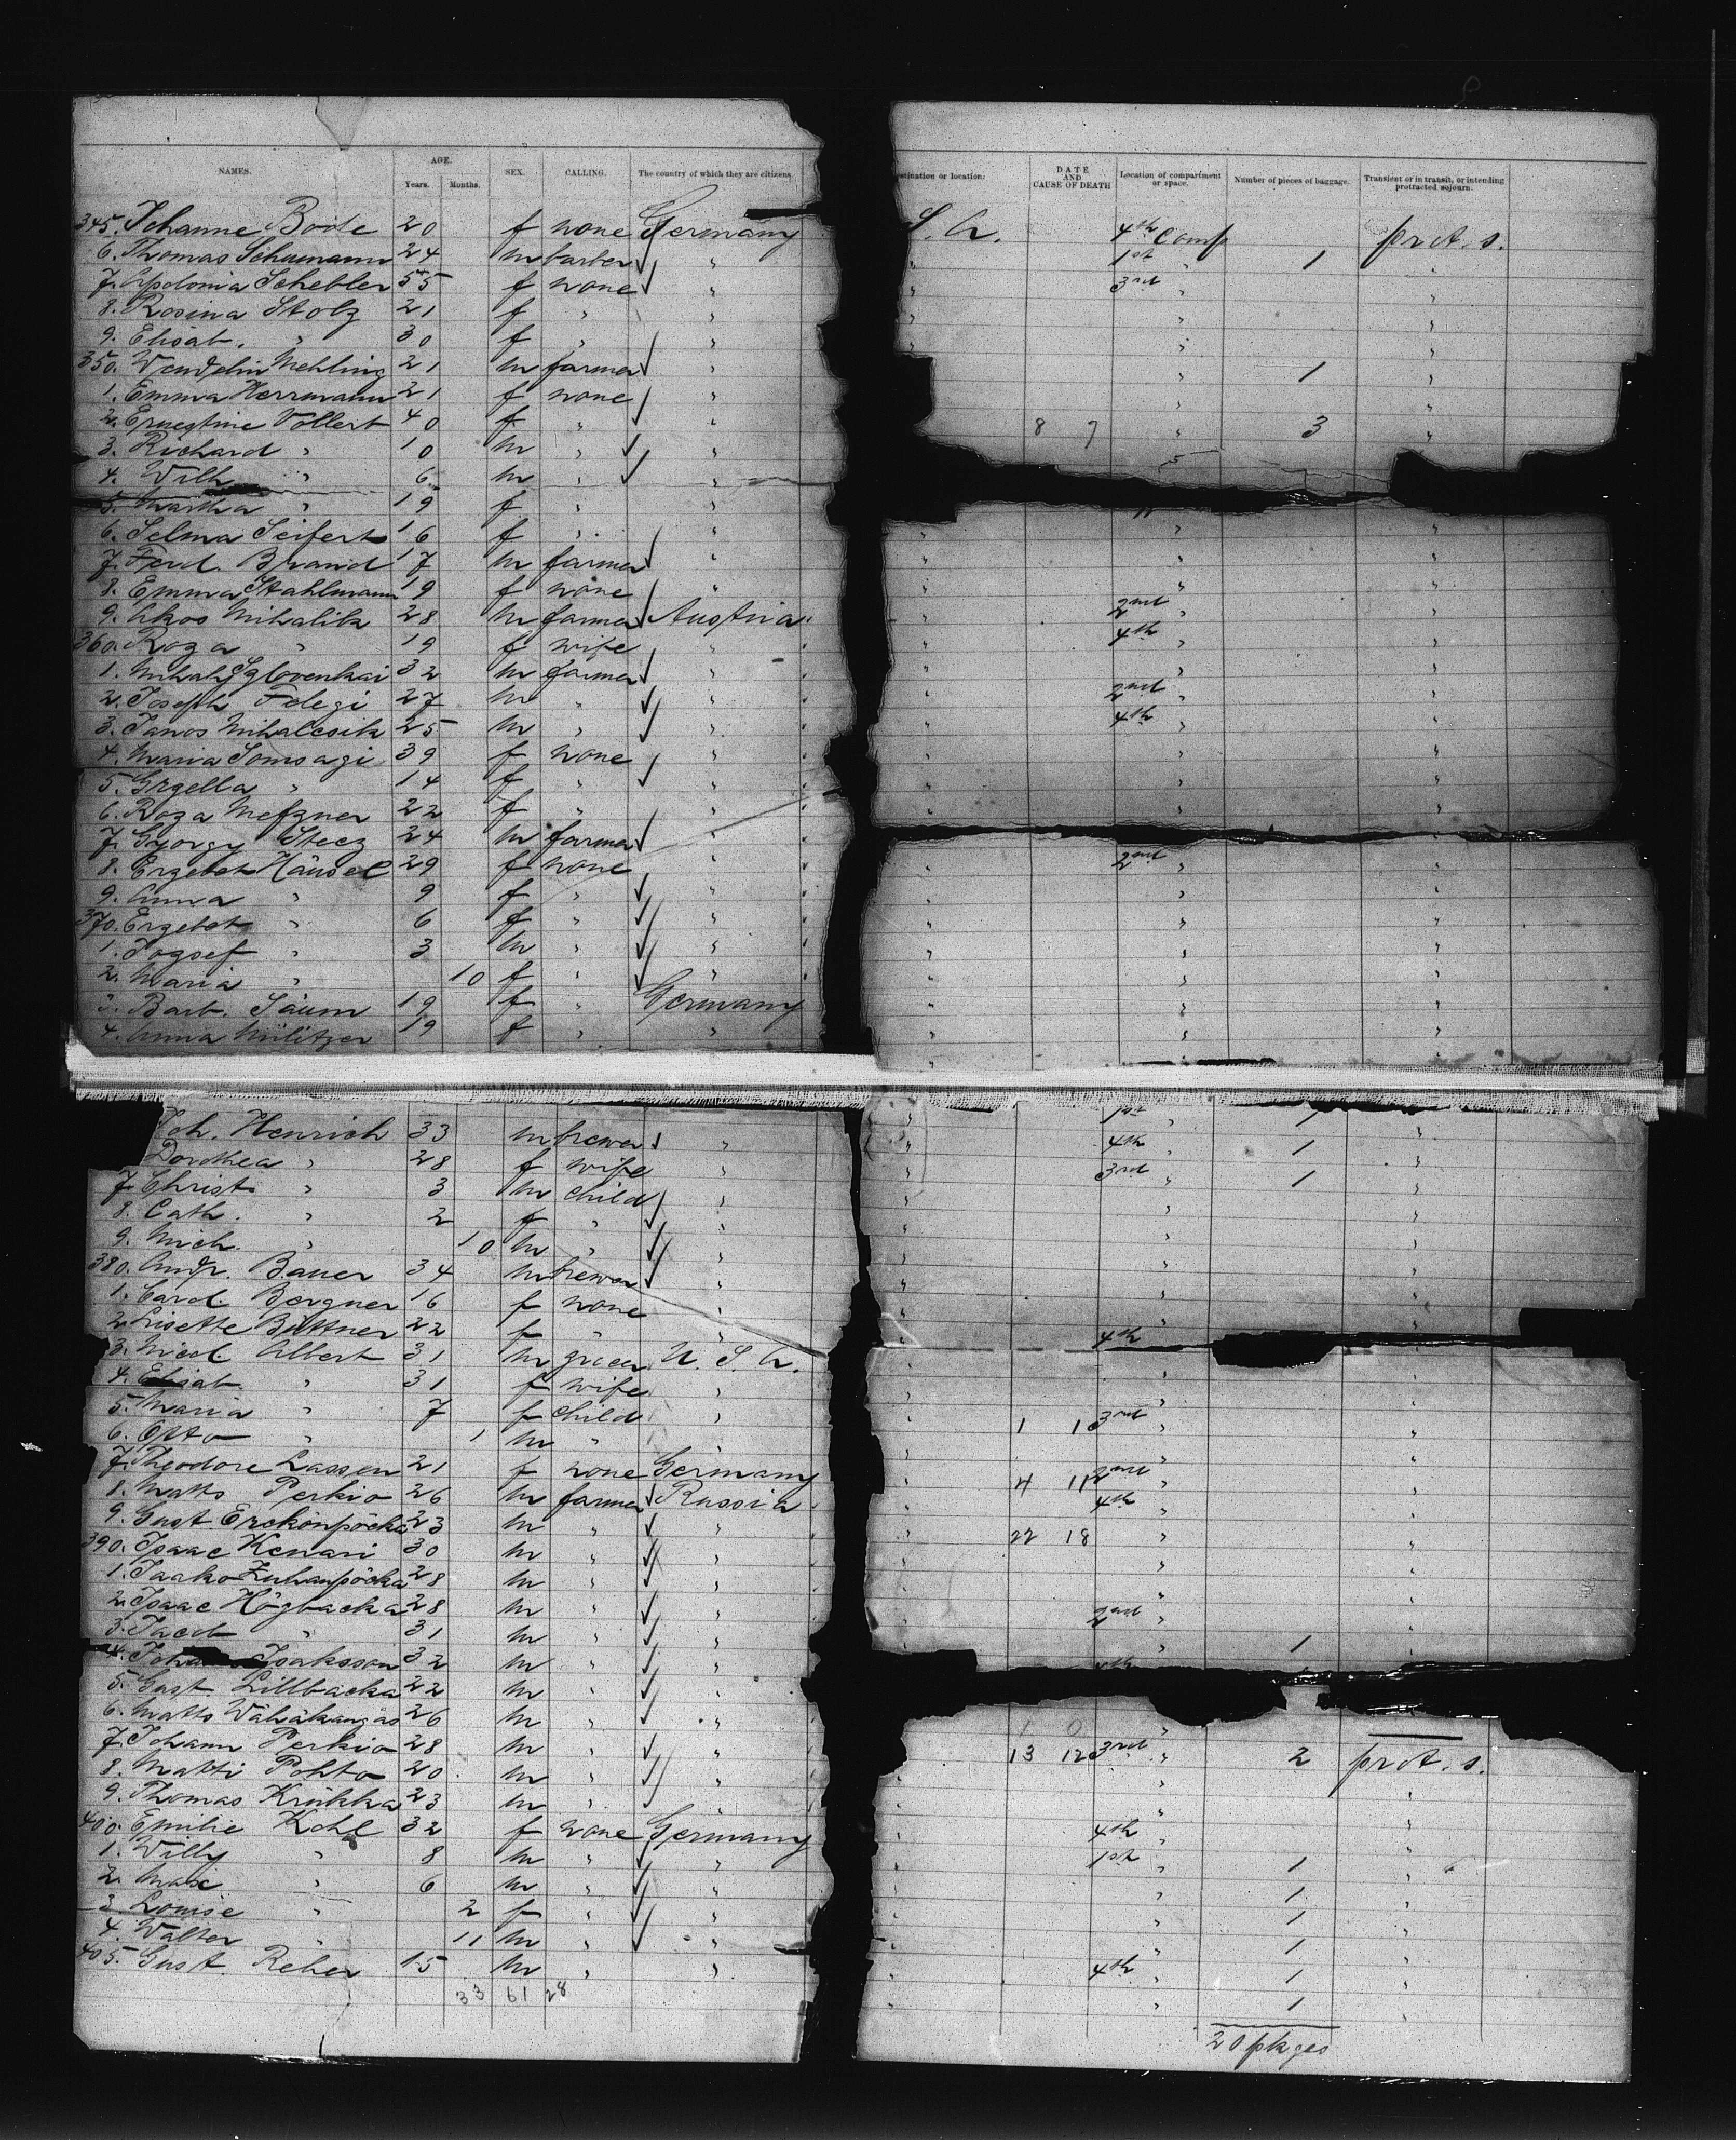 NAMES. AGE. Years. Months. SEX. CALLING. The country of which they are citizens.
345. Johanne Boote 20 f none Germany
6. Thomas Schumann 24 m barber "
7. Apolonia Schebler 55 f none "
8. Rosina Stolz 21 f " "
9. Elisab. " 30 f " "
350. Wendelin Mehling 21 m farmer "
1. Emma Herrmann 21 f none "
2. Ernestine Vollert 40 f " "
3. Richard " 10 m " "
4. Wilh " 6 m " "
5. Martha " 19 f " "
6. Selma Seifert 16 f " "
7. Ferd. Brand 17 m farmer "
8. Emma Stahlmann 19 f none "
9. Akos Mihalik 28 m farmer Austria
360. Roza " 19 f wife "
1. Mihaly 32 m farmer "
2. Joseph Felegi 27 m " "
3. Janos Mihalcsik 25 m " "
4. Maria Somsagi 39 f none "
5. Grzella " 14 f " "
6. Roza Metzner 22 f " "
7. Gyorgy Stecz 24 m farmer "
8. Erzebet Hänsel 29 f none "
9. Anna " 9 f " "
370. Erzebet " 6 f " "
1. Jozsef " 3 m " "
2. Maria " 10 f " "
3. Barb. Säum 19 f " Germany
4. Anna Militzer 19 f " "
Joh. Henrich 33 m brewer "
Dorothea " 28 f wife "
7. Christ " 3 m child "
8. Cath. " 2 f " "
9. Mich. " 10 m " "
380. Andr. Bauer 34 m brewer "
1. Carol. Bergner 16 f none "
2. Lisette Büttner 22 f " "
3. Nicol. Albert 31 m grocer U. S. A.
4. Elisab. " 31 f wife "
5. Maria " 7 f child "
6. Otto " 1 m " "
7. Theodore Lassen 21 f none Germany
8. Matts Perkio 26 m farmer Russia
9. Gust. 23 m " "
390. Isaac Kenari 30 m " "
1. Jaako 28 m " "
2. Isaac Högbacka 28 m " "
3. Jacob " 31 m " "
4. Isaksson 32 m " "
5. Gust. Lillbacka 22 m " "
6. Matts Wähäkangas 26 m " "
7. Johann Perkio 28 m " "
8. Matti Pohto 20 m " "
9. Thomas Krükka 23 m " "
400. Emilie Kohl 32 f none Germany
1. Willy " 8 m " "
2. Max " 6 m " "
3. Louise " 2 f " "
4. Walter " 11 m " "
405. Gust. Reher 15 m " "
33 61 28
stination or location: DATE AND CAUSE OF DEATH Location of compartment or space. Number of pieces of baggage. Transient or in transit, or intending protracted sojourn.
S. A. 4th Comp prot. s.
" 1st " 1 "
" 3rd " "
" " "
" " "
" 1 "
" "
8 7 " 3 "
" " "
" " "
" " "
" 2nd " "
" 4th " "
" " "
" 2nd " "
" 4th " "
" " "
" " "
" " "
" 2nd " "
" " "
" " "
" " "
" " "
" " "
" " "
" " "
" 1st " 1 "
" 4th " 1 "
" 3rd " 1 "
" " "
" " "
" " "
" " "
" " "
" 4th
" " "
" " "
" 1 1 3rd " "
" " "
" 4 11 2nd " "
" 4th " "
" 22 18 " "
" " "
" " "
" 2nd " "
" " 1 "
4th
1 0 "
13 12 3rd " 2 prot. s.
" " "
" " "
" 4th " "
" 1st " 1 "
" " 1 "
" " 1 "
" " 1 "
" 4th " 1 "
" " 1 "
20 pkges